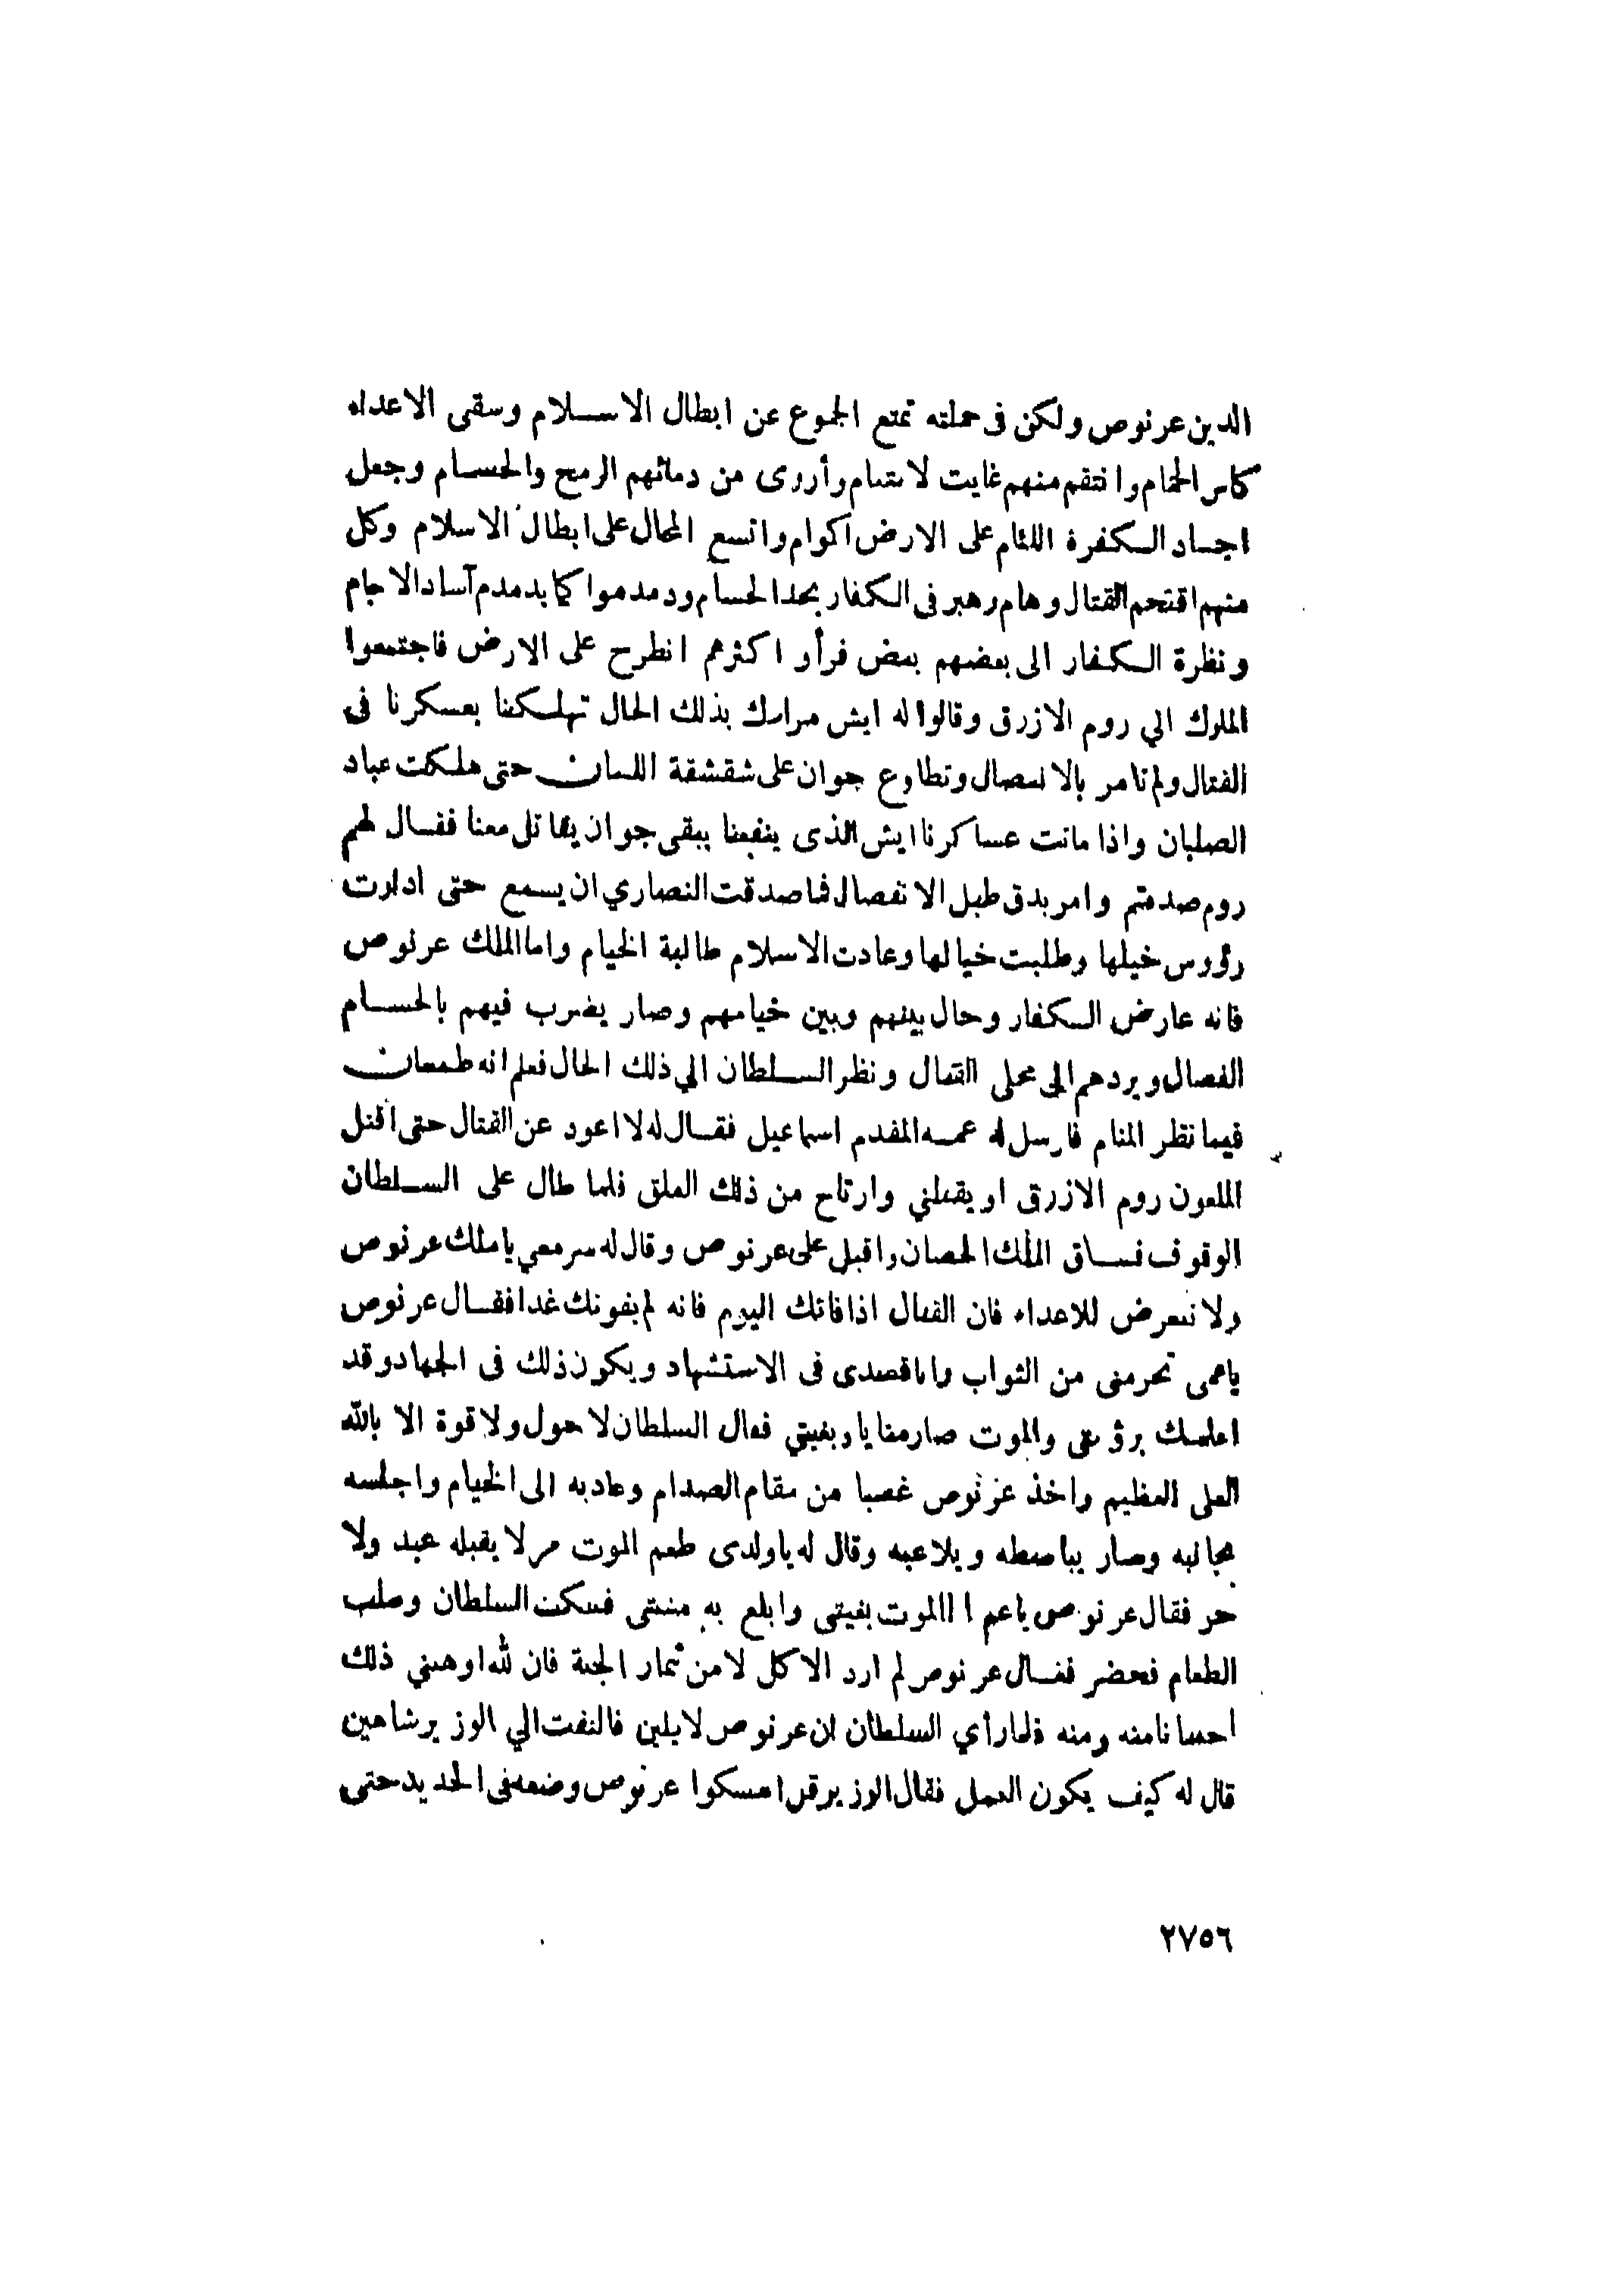 الدين عرنوص ولكن فى حملته تمتع الجموع عن ابطال الاسلام وسقى الاعداء
كاس الحمام وانتقم منهم غايت لا نتىام وأروى من دمائهم الرمح والحسام وجعل
اجساد الكفرة اللئام على الارض اكوام واتسع المجال على ابطال الاسلام وكل
منهم اقتحم القتال وهام وهبر فى الكفار بحد الحسام ودمدموا كما يدمدم آساد الاجام
ونظرة الكفار الى بعضهم بعض فرأو اكثرهم انطرح على الارض فاجتمعوا
الملوك الي روم الازرق وقالوا له ايش مرادك بذلك الحال تهلكنا بعسكرنا فى
القتال ولم تامر بالانفصال وتطاوع جوان على شقشقة اللسان حتى هلكت عباد
الصلبان واذا ماتت عساكرنا ايش الذى ينفعنا يبقى جوان يقاتل معنا فقال لهم
روم صدقتم وامر بدق طبل الانفصال فما صدقت النصاري ان يسمع حتى ادارت
رؤوس خيلها وطلبت خيالها وعادت الاسلام طالبة الخيام واما الملك عرنوص
فانه عارض الكفار وحال بينهم وبين خيامهم وصار يضرب فيهم بالحسام
الفصال ويردهم الى محلى القتال ونظر السلطان الي ذلك الحال فعلم انه طمعان
فيما نظر المنام فارسل له عمه المقدم اسماعيل فقال له لا اعود عن القتال حتى اقتل
الملعون روم الازرق او يقتلني وارتاح من ذلك العلق فلما طال على السلطان
الوقوف فساق الملك الحصان واقبل على عرنوص وقال له سر معي يا ملك عرنوص
ولا تتعرض للاعداء فان القتال اذا فاتك اليوم فانه لم يفوتك غدا فقال عرنوص
ياعمى تحرمنى من الثواب وانا قصدى فى الاستشهاد ويكون ذلك فى الجهاد وقد
اعلمتك برؤيتى والموت صار منايا وبغيتي فقال السلطان لا حول ولا قوة الا بالله
العلى العظيم واخذ عرنوص غصبا من مقام الصدام وعاد به الى الخيام واجلسه
بجانبه وصار يباصطه ويلاعبه وقال له ياولدى طعم الموت مر لا يقبله عبد ولا
حر فقال عرنوص ياعم ا الموت بغيتى وابلع به منيتى فسكت السلطان وطلب
الطعام فحضر فقال عرنوص لم ارد الاكل لا من ثمار الجنة فان لله اوهبني ذلك
احسانا منه ومنه فلما رأي السلطان ان عرنوص لا يلين فالتفت الي الوزير شاهين
قال له كيف يكون العمل فقال الوزير قل امسكوا عرنوص وضعه فى الحديد حتى
٢٧٥٦